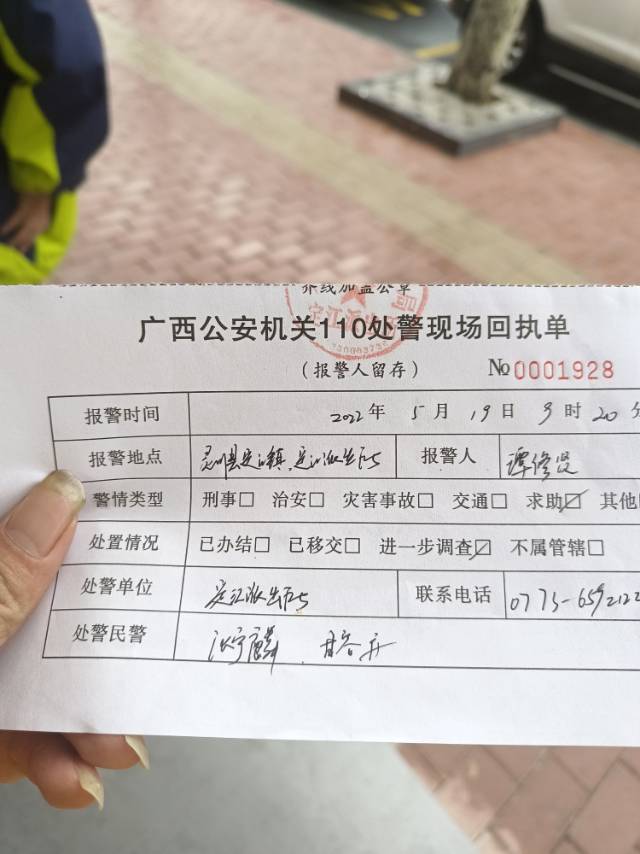 齐线加盖公章
广西公安机关110处警现场回执单
(报警人留存) No 0001928
报警时间 2022年 5月 19日 9时 20分
报警地点 灵川县定江镇,定江派出所 报警人 谭修贤
警情类型 刑事□ 治安□ 灾害事故□ 交通□ 求助☑ 其他
处置情况 已办结□ 已移交□ 进一步调查☑ 不属管辖□
处警单位 定江派出所 联系电话 0773-6592122
处警民警